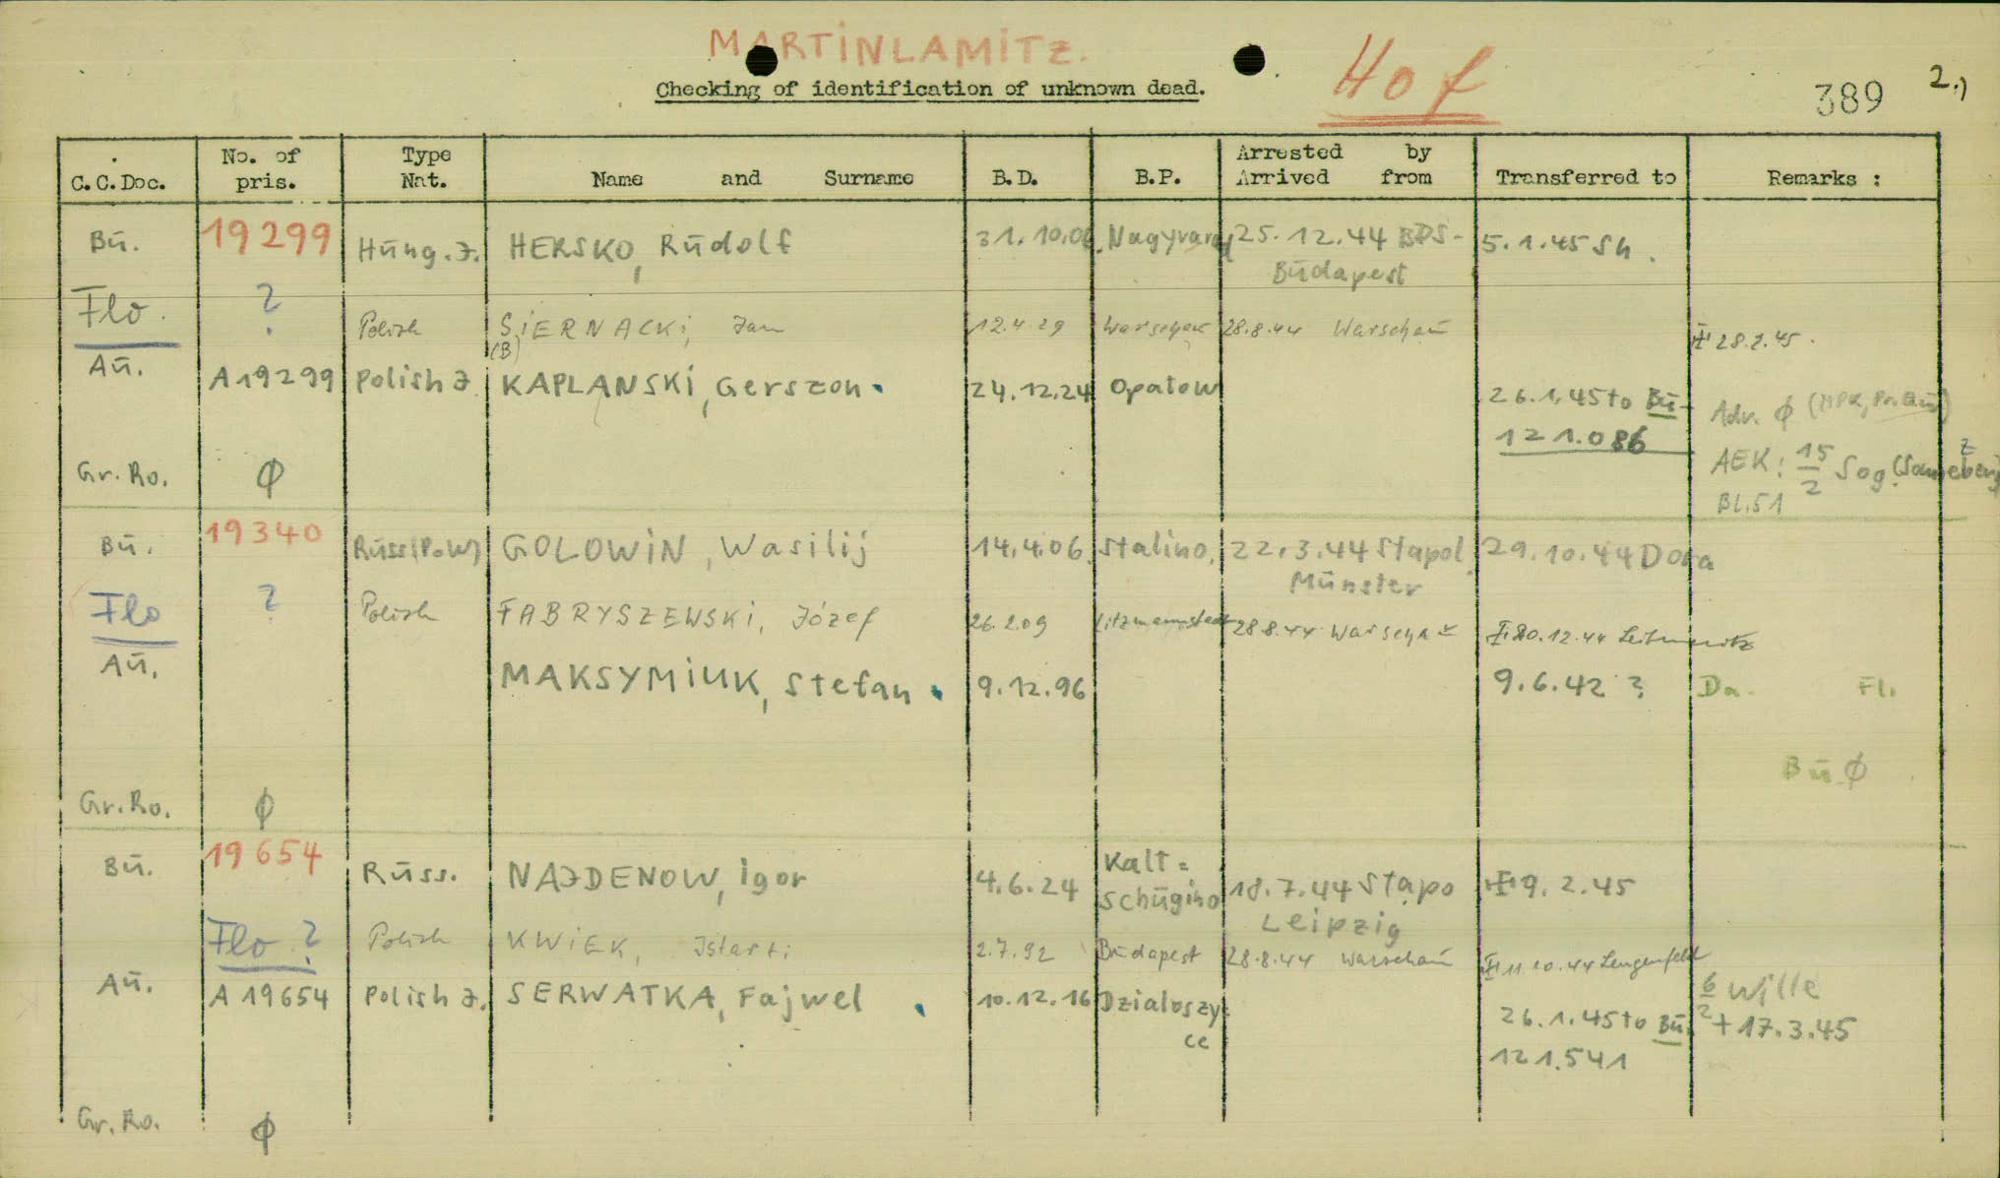 MARTINLAMITZ.
Checking of identification of unknown dead.
Hof
389
2.)
C.C.Doc. No. of pris. Type Nat. Name and Surname B.D. B.P. Arrested by Arrived from Transferred to Remarks :
Bū. 19299 Hūng.J. HERSKO, Rūdolf 31.10.06. Nagyvarad 25.12.44 BDS- 5.1.45 Sh.
Būdapest
Flo. ? Polish SIERNACKi, Jan 12.4.29 Warschau 28.8.44 Warschaū 28.2.45.
(B)
Aū. A19299 Polish J. KAPLANSKi, Gerszon. 24.12.24 Opatow 26.1.45 to Bū- Adv. ϕ
121.086
Gr.Ro. ϕ AEK: 15/2 Sog.
Bl.51
Bū. 19340 Rūss(P.W) GOLOWiN, Wasilij 14.4.06. Stalino. 22.3.44 Stapol. 29.10.44 Dora
Mūnster
Flo ? Polish FABRYSZEWSKi, Józef 26.2.09 Litzmannstadt 28.8.44 Warschaū 20.12.44 Leitmeritz
Aū. MAKSYMiUK, Stefan 9.12.96 9.6.42 ? Da. Fl.
Bū ϕ
Gr.Ro. ϕ
Bū. 19654 Rūss. NAJDENOW, igor 4.6.24 Kalt= schūgino 18.7.44 Stapo 9.2.45
Leipzig
Flo ? Polish KWiEK, 2.7.92 Būdapest 28.8.44 Warschaū 11.10.44 Lengenfeld
Aū. A 19654 Polish J. SERWATKA, Fajwel 10.12.16 Dzialoszy= ce 6/2 Wille
26.1.45 to Bū. +17.3.45
121.541
Gr.Ro. ϕ